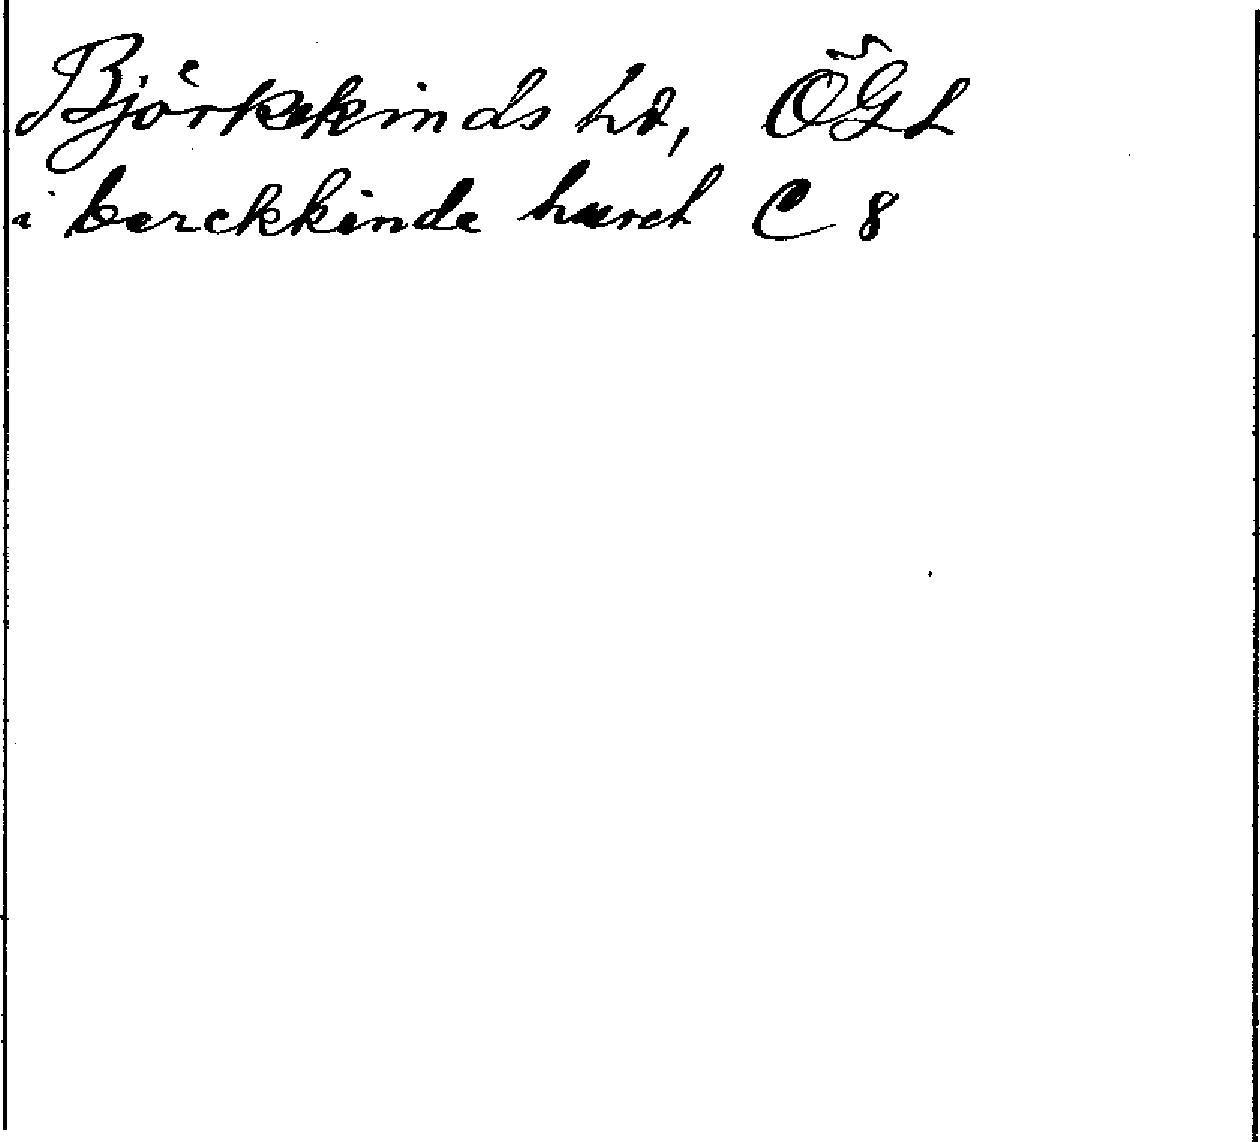 Björkekinds hd, ÖGL
i berckkinde hæret C 8